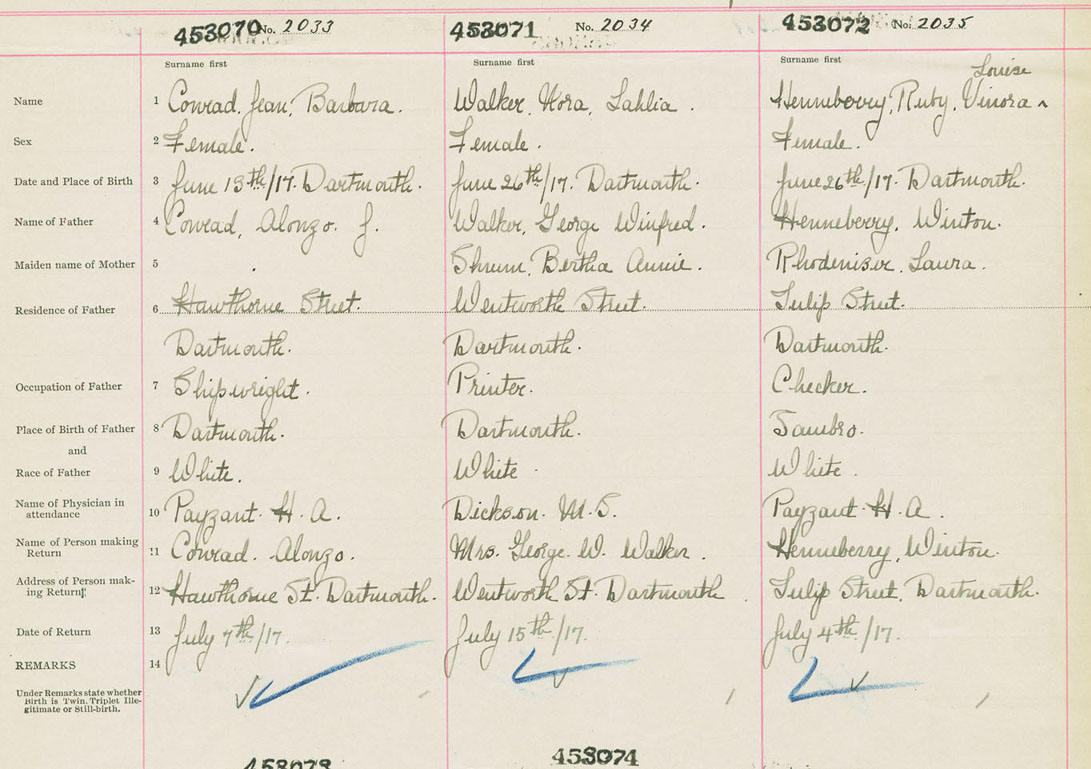 453070 No. 2033 453071 No. 2034 453072 No. 2035
Surname first Surname first Surname first
Louise
Name 1 Conrad, Jean, Barbara. Walker, Nora, Lahlia. Henneberry, Ruby, Vinora ^
Sex 2 Female. Female. Female.
Date and Place of Birth 3 June 13th/17. Dartmouth. June 26th/17. Dartmouth. June 26th/17. Dartmouth.
Name of Father 4 Conrad, Alonzo. J. Walker, George Winfred. Henneberry, Winton.
Maiden name of Mother 5 Bertha Annie. Rhodeniser, Laura.
Residence of Father 6 Hawthorne Street. Wentworth Street. Tulip Street.
Dartmouth. Dartmouth. Dartmouth.
Occupation of Father 7 Shipwright. Printer. Checker.
Place of Birth of Father 8 Dartmouth. Dartmouth. Sambro.
and
Race of Father 9 White. White. White.
Name of Physician in attendance 10 Payzant. H. A. Dickson. M. S. Payzant. H. A.
Name of Person making Return 11 Conrad. Alonzo. Mrs. George. W. Walker. Henneberry, Winton.
Address of Person mak-
ing Return 12 Hawthorne St. Dartmouth. Wentworth St. Dartmouth Tulip Street, Dartmouth.
Date of Return 13 July 7th/17. July 15th/17. July 4th/17.
REMARKS 14
Under Remarks state whether
Birth is Twin, Triplet Ille-
gitimate or Still-birth.
453073 453074